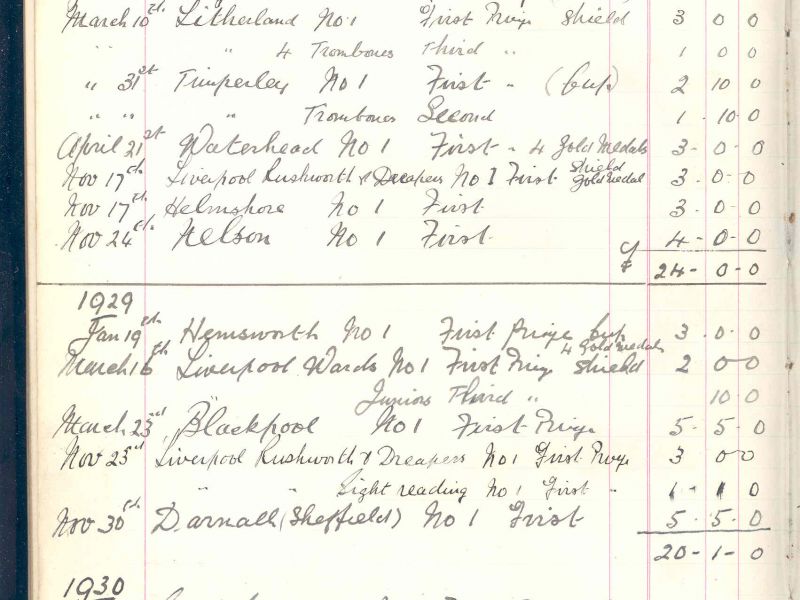 March 10th Litherland No 1 First Prize Shield 3 0 0
" " 4 Trombones Third " 1 0 0
" 31st Timperley No 1 First " (Cup) 2 10 0
" " " Trombones Second 1 - 10 - 0
April 21st Waterhead No 1 First " 4 Gold Medals 3 - 0 - 0
Nov 17th Liverpool Rushworth & Dreapers No 1 First Shield Gold Medal 3 - 0 - 0
Nov 17th Helmshore No 1 First 3 - 0 - 0
Nov 24th Nelson No 1 First 4 - 0 - 0
£ 24 - 0 - 0
1929
Jan 19th Hemsworth No 1 First Prize Cup 4 Gold Medals 3 - 0 - 0
March 16th Liverpool Wards No 1 First Prize Shield 2 0 0
Juniors Third " 10 0
March 23rd Blackpool No 1 First Prize 5 - 5 - 0
Nov 23rd Liverpool Rushworth & Dreapers No 1 First Prize 3 0 0
" " Sight reading No 1 First " 1 - 1 0
Nov 30th Darnall (Sheffield) No 1 First 5 - 5 - 0
20 - 1 - 0
1930